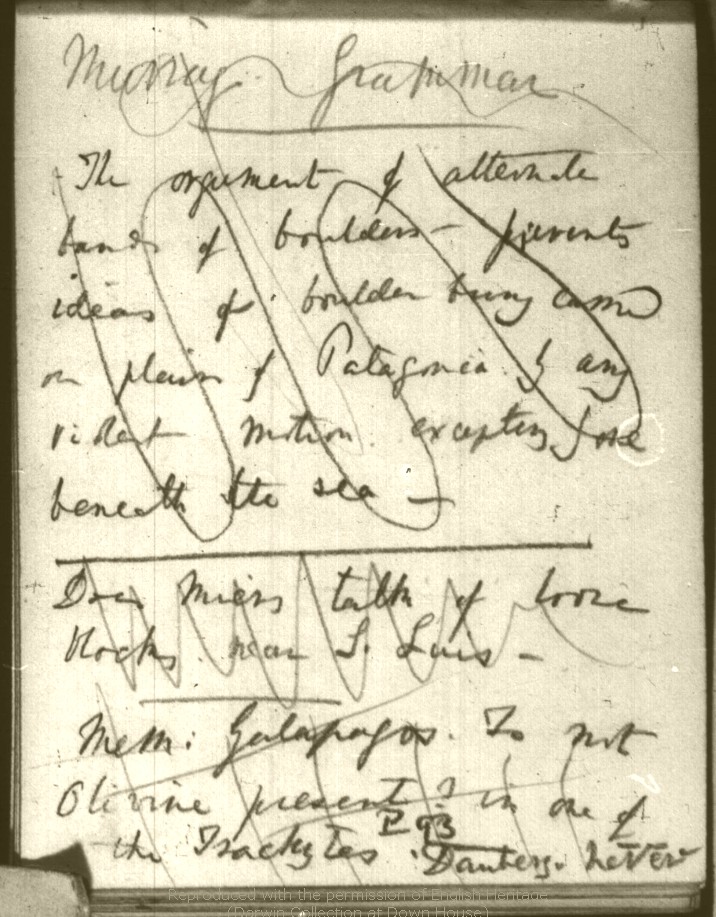 Murray Grammar
The argument of alternate
bands of boulders — prevents
ideas of boulder being
on plain of Patagonia by any
violent motion. excepting
beneath the sea —
Does Miers talk of loose
blocks near S. Luis —
Mem: Galapagos. Is not
Olivine present? in one of
P 93
the Trachytes
Reproduced with the permission of English Heritage
(Darwin Collection at Down House)